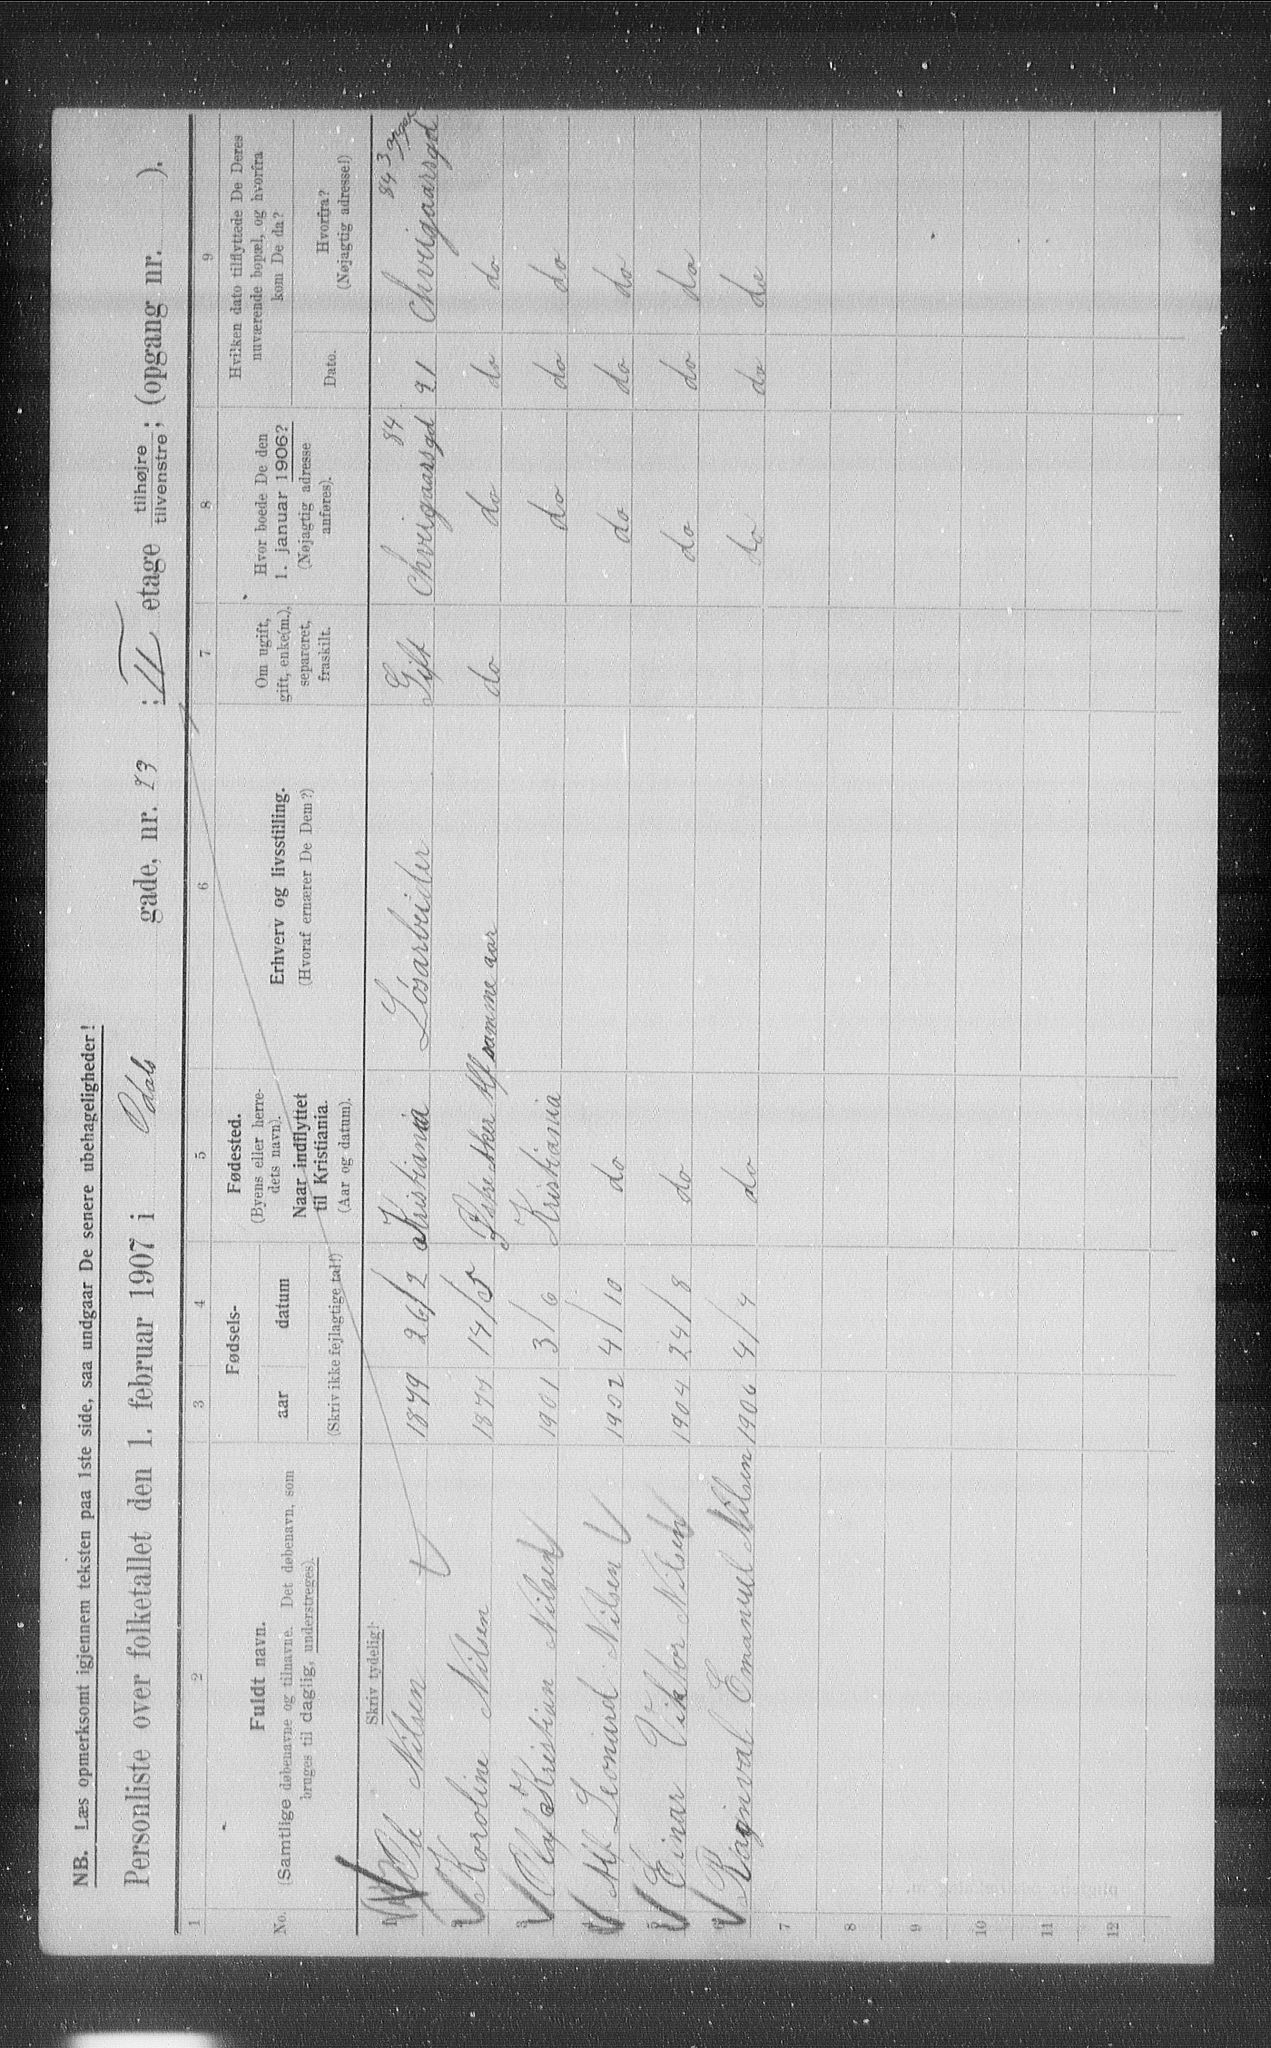 NB. Læs opmerksomt igjennem teksten paa 1ste side, saa undgaar De senere ubehageligheder!
Personliste over folketallet den 1. februar 1907 i Odals gade, nr. 23 ; II etage tilhøjre tilvenstre; (opgang nr. ).
1 2 3 4 5 6 7 8 9
No.
Fuldt navn.
(Samtlige døbenavne og tilnavne. Det døbenavn, som
bruges til daglig, understreges).
Fødsels-
aar datum
(Skriv ikke fejlagtige tal!)
Fødested.
(Byens eller herre-
dets navn).
Naar indflyttet
til Kristiania.
(Aar og datum).
Erhverv og livsstilling.
(Hvoraf ernærer De Dem?)
Om ugift,
gift, enke(m.),
separeret,
fraskilt.
Hvor boede De den
1. januar 1906?
(Nøjagtig adresse
anføres).
Hvilken dato tilflyttede De Deres
nuværende bopæl, og hvorfra
kom De da?
Dato.
Hvorfra?
(Nøjagtig adresse!)
Skriv tydelig!
1 Ole Nilsen 1879 26/2 Kristiania Løsarbeider Gift Schveigaarsgd 84 21 Schveigaarsgd 84
2 Karoline Nilsen 1877 14/5 Østre Aker samme aar do do do do
3 Olaf Kristian Nilsen 1901 3/6 Kristiania do do do
4 Alf Leonard Nilsen 1902 4/10 do do do do
5 Einar Viktor Nilsen 1904 24/8 do do do do
6 Raginval Emanuel Nilsen 1906 4/4 do do do do
7
8
9
10
11
12